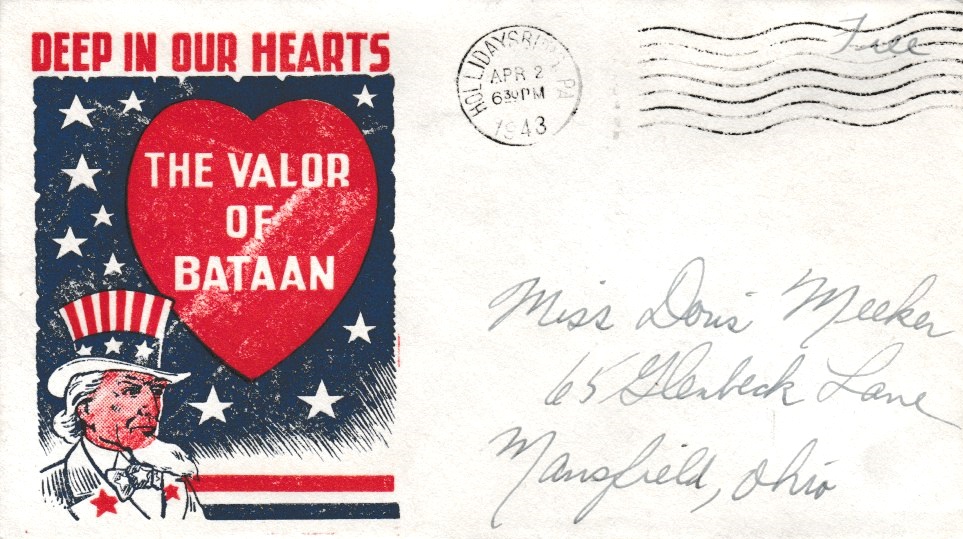 DEEP IN OUR HEARTS
THE VALOR
OF
BATAAN
HOLLIDAYSBURG PA
APR 2
630 PM
1943
Free
Miss Doris Meeker
65 Glenbeck Lane
Mansfield, Ohio